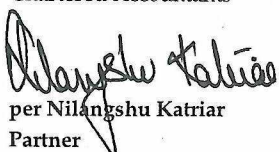 Nilangshu Katriar
per Nilangshu Katriar
Partner